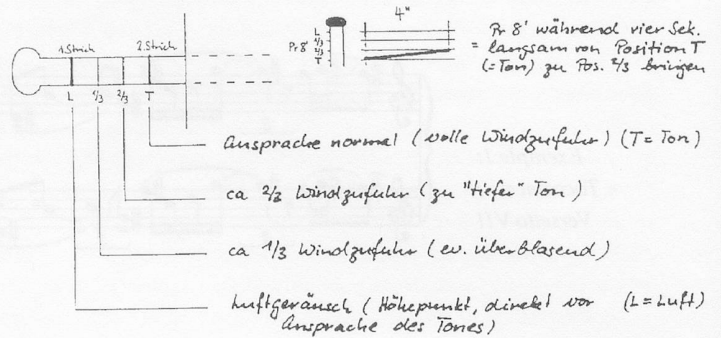 4"
1. Strich 2. Strich
L 1/3 2/3 T
Pr 8'
L
1/3
2/3
T
Pr 8' während vier Sek.
= langsam von Position T
(=Ton) zu Pos. 2/3 bringen
Ansprache normal (volle Windzufuhr) (T = Ton)
ca 2/3 Windzufuhr (zu "tiefer" Ton)
ca 1/3 Windzufuhr (ev. überblasend)
Luftgeräusch (Höhepunkt, direkt vor (L = Luft)
Ansprache des Tones)